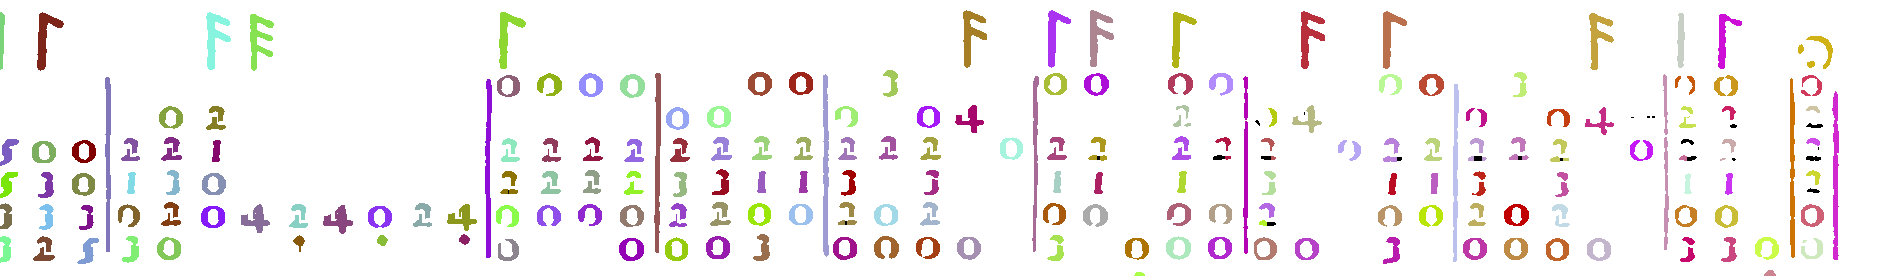 0 0 0 0 0 0 3 0 0 0 0 0 0 3 0 0 0
0 2 0 0 0 0 4 2 0 4 0 0 4 2 2 2
5 0 0 2 2 1 2 2 2 2 2 2 2 2 2 2 2 0 2 2 2 2 2 0 2 2 2 2 2 0 2 2 2
5 3 0 1 3 0 2 2 2 2 3 3 1 1 3 3 1 1 1 3 1 1 3 3 1 1 2
3 3 3 0 2 0 4 2 4 0 2 4 0 0 0 0 2 2 0 0 2 0 2 0 0 0 0 2 0 0 2 0 2 0 0 0
3 2 5 3 0 0 0 0 0 3 0 0 0 0 3 0 0 0 0 0 3 0 0 0 0 3 3 0 0